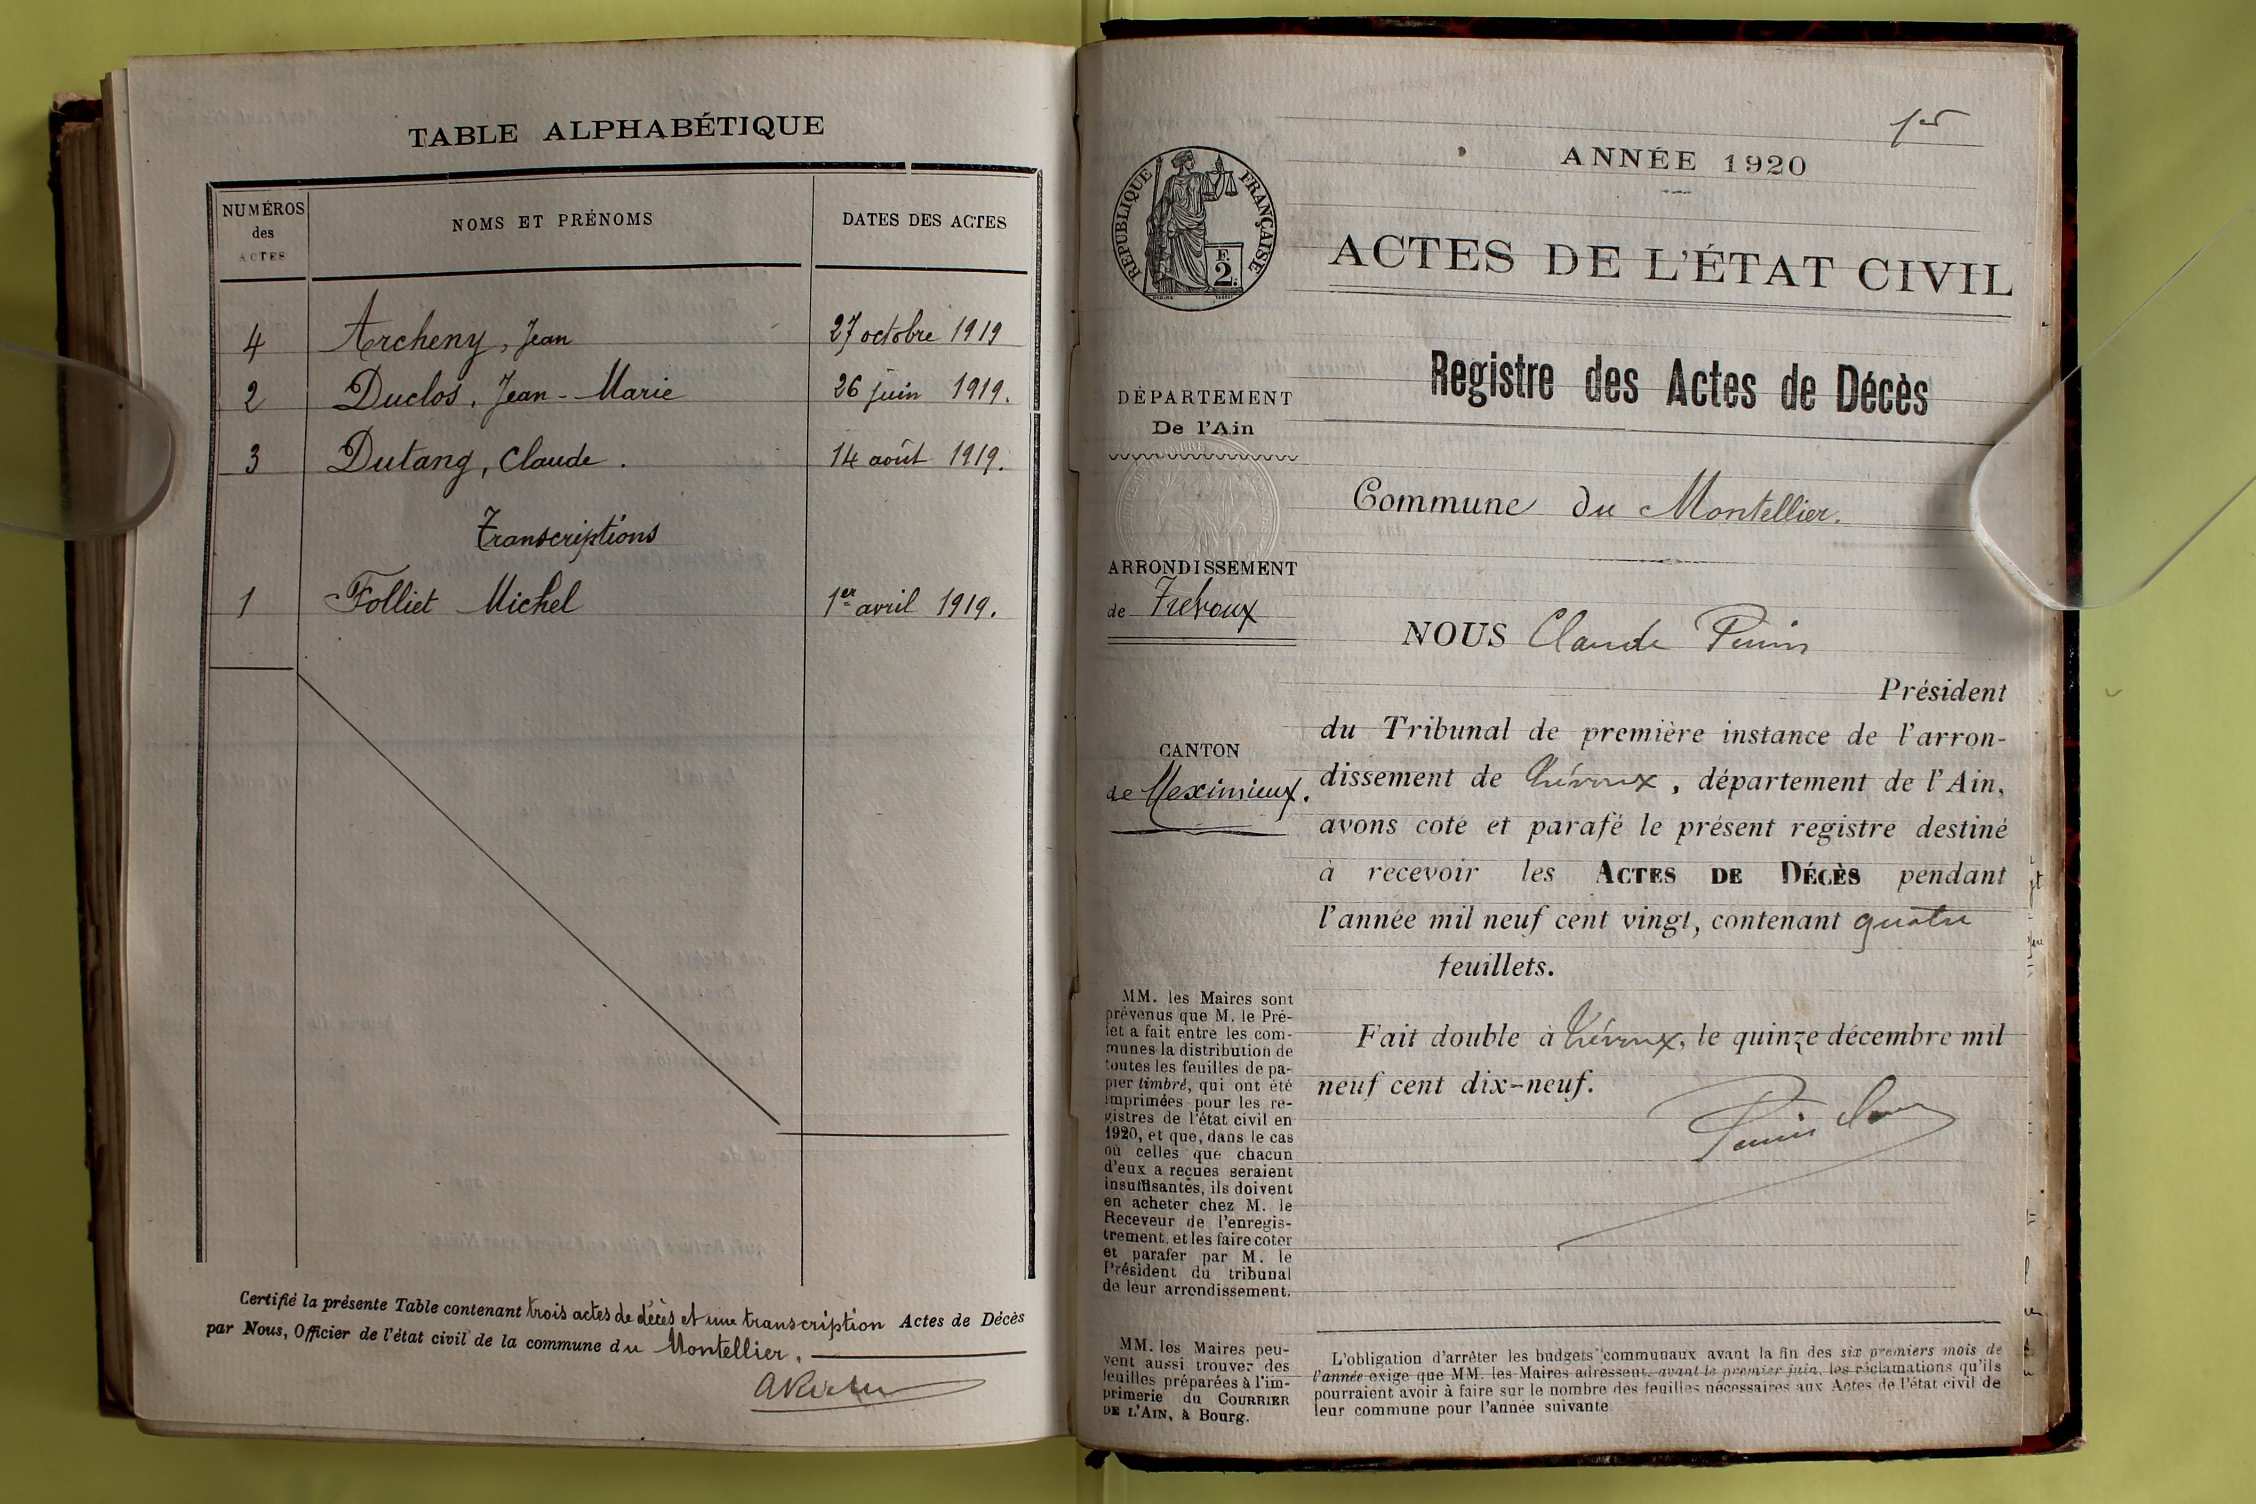 TABLE ALPHABÉTIQUE
NUMÉROS
des
ACTES
NOMS ET PRÉNOMS
DATES DES ACTES
4 Archeny, Jean 27 octobre 1919
2 Duclos, Jean-Marie 26 juin 1919.
3 Dutang, Claude. 14 août 1919.
Transcriptions
1 Folliet Michel 1er avril 1919.
Certifié la présente Table contenant trois actes de décès et une transcription Actes de Décès
par Nous, Officier de l'état civil de la commune du Montellier.
1er
ANNÉE 1920
RÉPUBLIQUE FRANÇAISE
F.
2.
ACTES DE L'ÉTAT CIVIL
Registre des Actes de Décès
DÉPARTEMENT
De l'Ain
Commune du Montellier.
ARRONDISSEMENT
de Trévoux
NOUS Claude
Président
du Tribunal de première instance de l'arron-
CANTON
de Meximieux.
dissement de Trévoux, département de l'Ain,
avons coté et parafé le présent registre destiné
à recevoir les ACTES DE DÉCÈS pendant
l'année mil neuf cent vingt, contenant quatre
feuillets.
Fait double à Trévoux, le quinze décembre mil
neuf cent dix-neuf.
MM. les Maires sont
prévenus que M. le Pré-
fet a fait entre les com-
munes la distribution de
toutes les feuilles de pa-
pier timbré, qui ont été
imprimées pour les re-
gistres de l'état civil en
1920, et que, dans le cas
où celles que chacun
d'eux a reçues seraient
insuffisantes, ils doivent
en acheter chez M. le
Receveur de l'enregis-
trement, et les faire coter
et parafer par M. le
Président du tribunal
de leur arrondissement.
MM. les Maires peu-
vent aussi trouver des
feuilles préparées à l'im-
primerie du COURRIER
DE L'AIN, à Bourg.
L'obligation d'arrêter les budgets communaux avant la fin des six premiers mois de
l'année exige que MM. les Maires adressent, avant le premier juin, les réclamations qu'ils
pourraient avoir à faire sur le nombre des feuilles nécessaires aux Actes de l'état civil de
leur commune pour l'année suivante